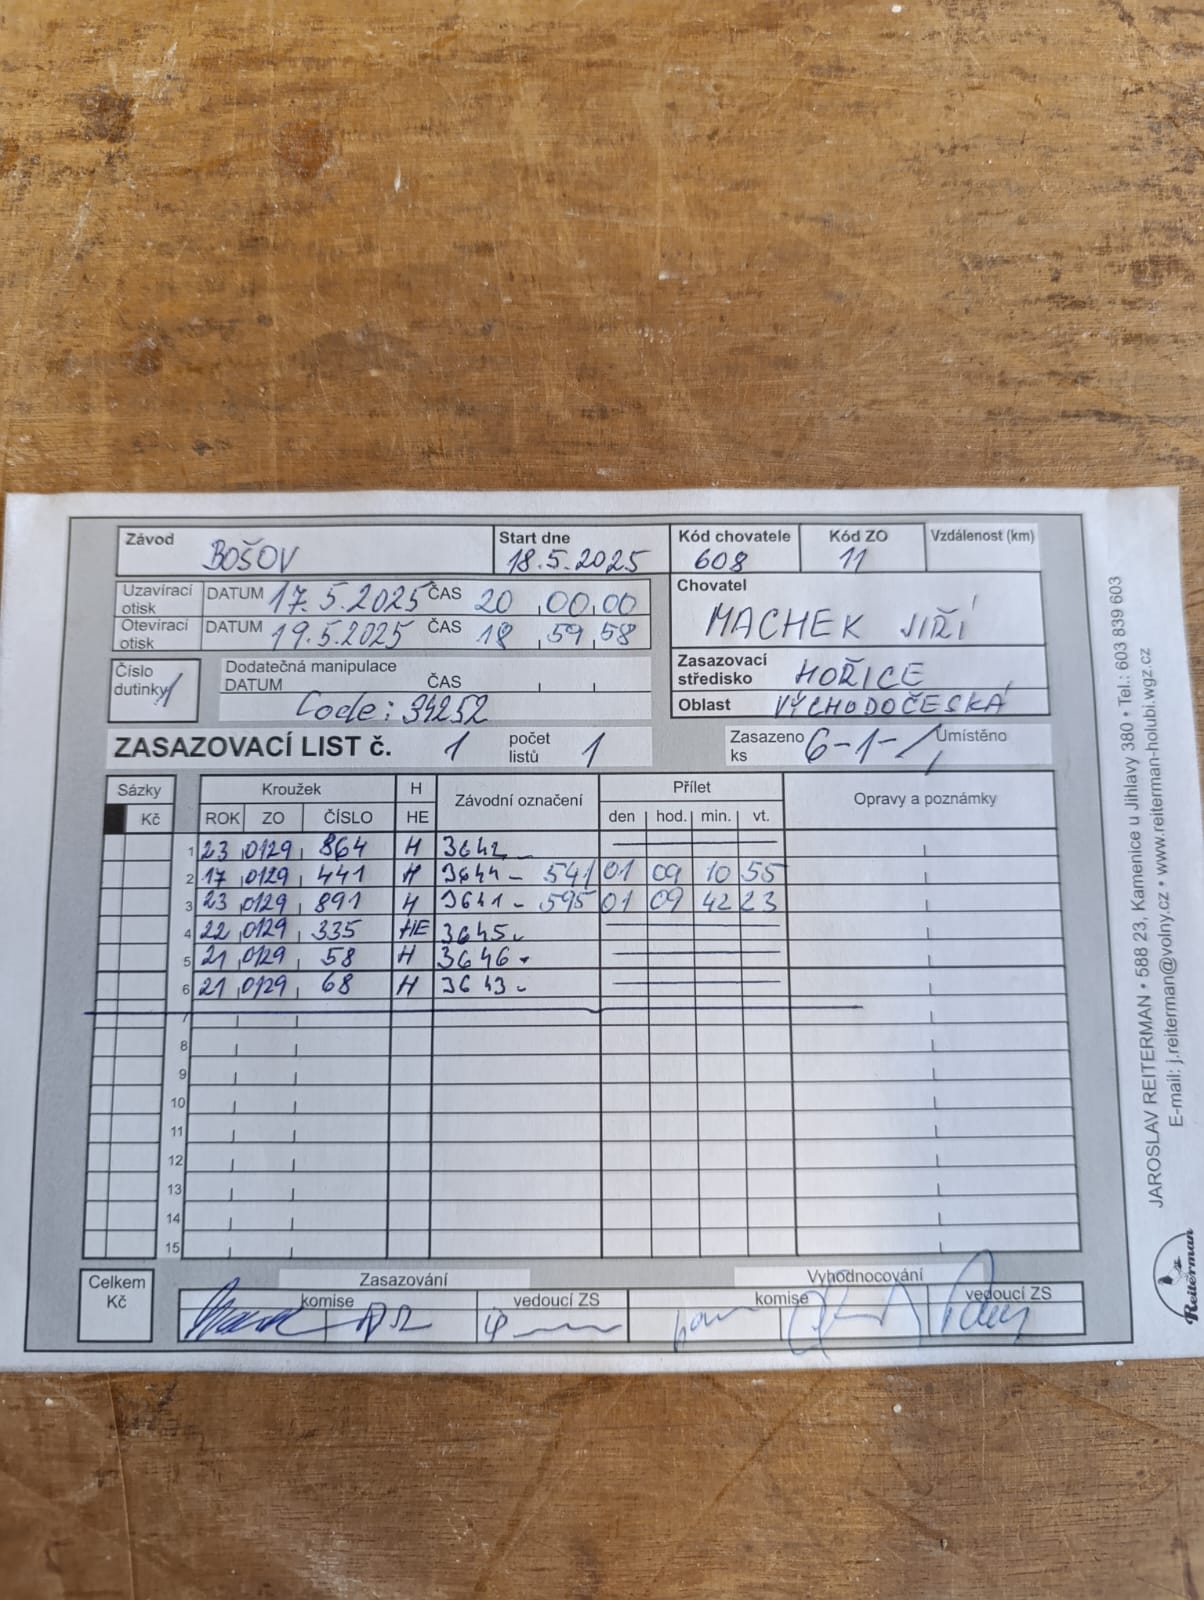 Závod BOŠOV Start dne 18.5.2025 Kód chovatele 608 Kód ZO 11 Vzdálenost (km)
Uzavírací otisk DATUM 17.5.2025 ČAS 20 00 00
Otevírací otisk DATUM 19.5.2025 ČAS 18 59 58
Chovatel MACHEK JIŘÍ
Číslo dutinky 1
Dodatečná manipulace
DATUM ČAS
Code: 34252
Zasazovací středisko HOŘICE
Oblast VÝCHODOČESKÁ
ZASAZOVACÍ LIST č. 1 počet listů 1 Zasazeno ks 6-1- Umístěno
Sázky Kroužek H Závodní označení Přílet Opravy a poznámky
Kč ROK ZO ČÍSLO HE den hod. min. vt.
1 23 0129 864 H 3642
2 17 0129 441 H 3644 - 541 01 09 10 55
3 23 0129 891 H 3641 - 595 01 09 42 23
4 22 0129 335 HE 3645
5 21 0129 58 H 3646
6 21 0129 68 H 3643
7
8
9
10
11
12
13
14
15
Celkem Kč
Zasazování Vyhodnocování
komise vedoucí ZS komise vedoucí ZS
JAROSLAV REITERMAN • 588 23, Kamenice u Jihlavy 380 • Tel.: 603 839 603
E-mail: j.reiterman@volny.cz • www.reiterman-holubi.wgz.cz
Reiterman